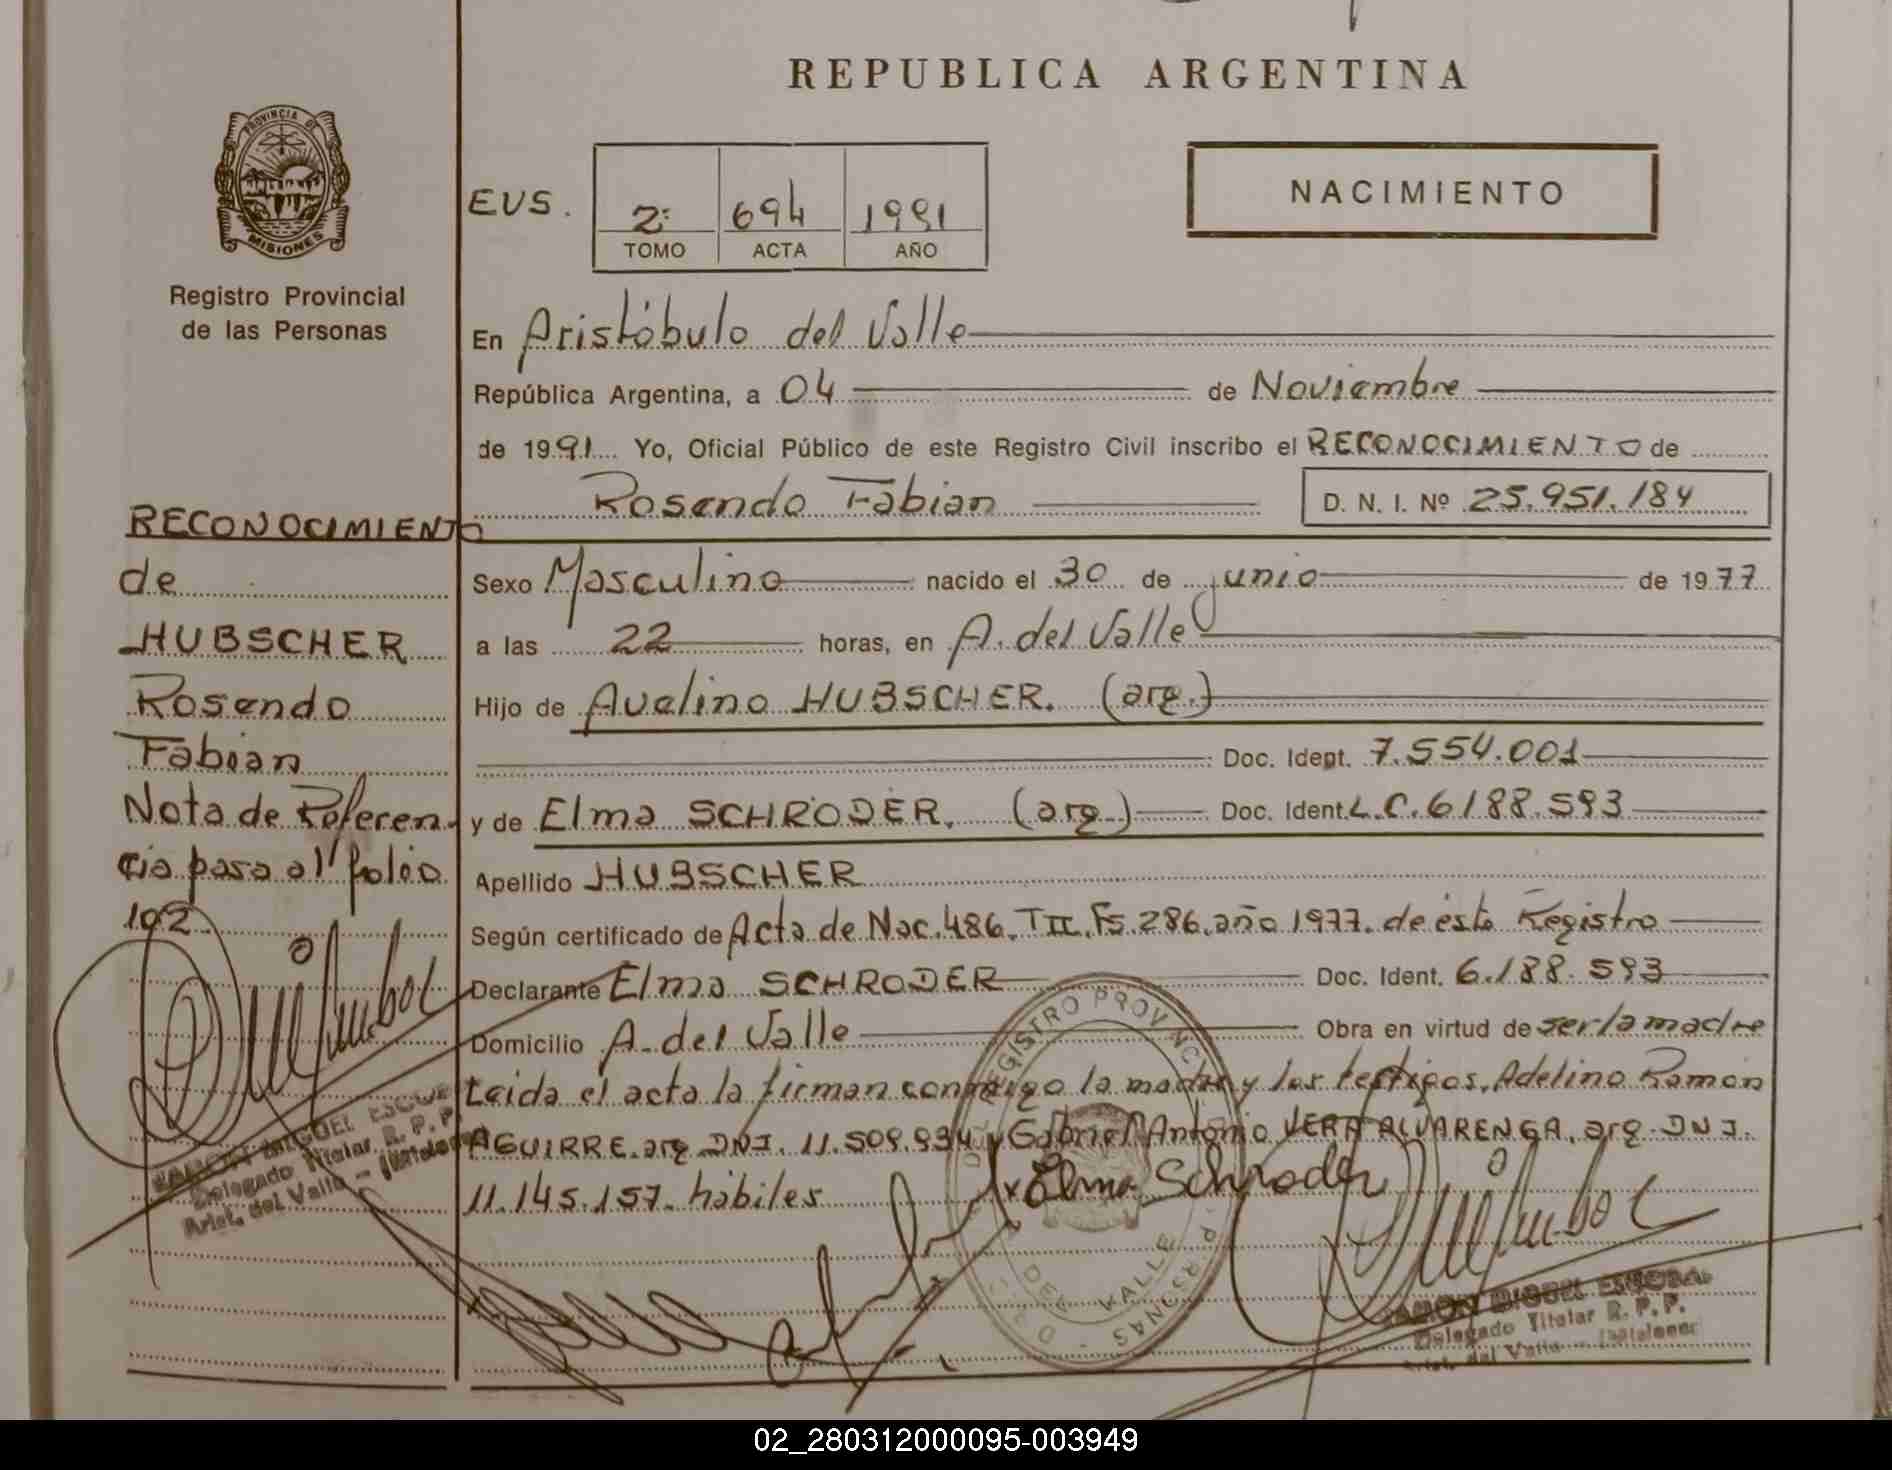 REPUBLICA ARGENTINA
PROVINCIA DE
MISIONES
Registro Provincial
de las Personas
EVS.
2: 694 1991
TOMO ACTA AÑO
NACIMIENTO
En Aristóbulo del Valle
República Argentina, a 04 de Noviembre
de 1991 Yo, Oficial Público de este Registro Civil inscribo el RECONOCIMIENTO de
Rosendo Fabian D. N. I. Nº 25.951.184
Sexo Masculino nacido el 30 de junio de 1977
a las 22 horas, en A. del Valle
Hijo de Avelino HUBSCHER. (arg.)
Doc. Ident. 7.554.001
y de Elma SCHRÖDER. (arg.) Doc. Ident. L.C. 6188.593
Apellido HUBSCHER
Según certificado de Acta de Nac. 486. T II. Fs. 286. año 1977. de ésta Registro
Declarante Elma SCHRODER Doc. Ident. 6.188.593
Domicilio A. del Valle Obra en virtud de ser la madre
Leida el acta la firman conmigo la madre y los testigos, Adelino Ramón
AGUIRRE. arg. DNI. 11.509.934 y Gabriel Antonio VERA ALVARENGA. arg. DNI.
11.145.157. hábiles
Elma Schroder
RECONOCIMIENTO
de
HUBSCHER
Rosendo
Fabian
Nota de Referen-
cia pasa al folio
102
RAMON MIGUEL ESCOBAR
Delegado Titular R. P. P.
Arist. del Valle - (Misiones)
REGISTRO PROVINCIAL
DEL VALLE
RAMON MIGUEL ESCOBAR
Delegado Titular R. P. P.
Arist. del Valle - (Misiones)
02_280312000095-003949